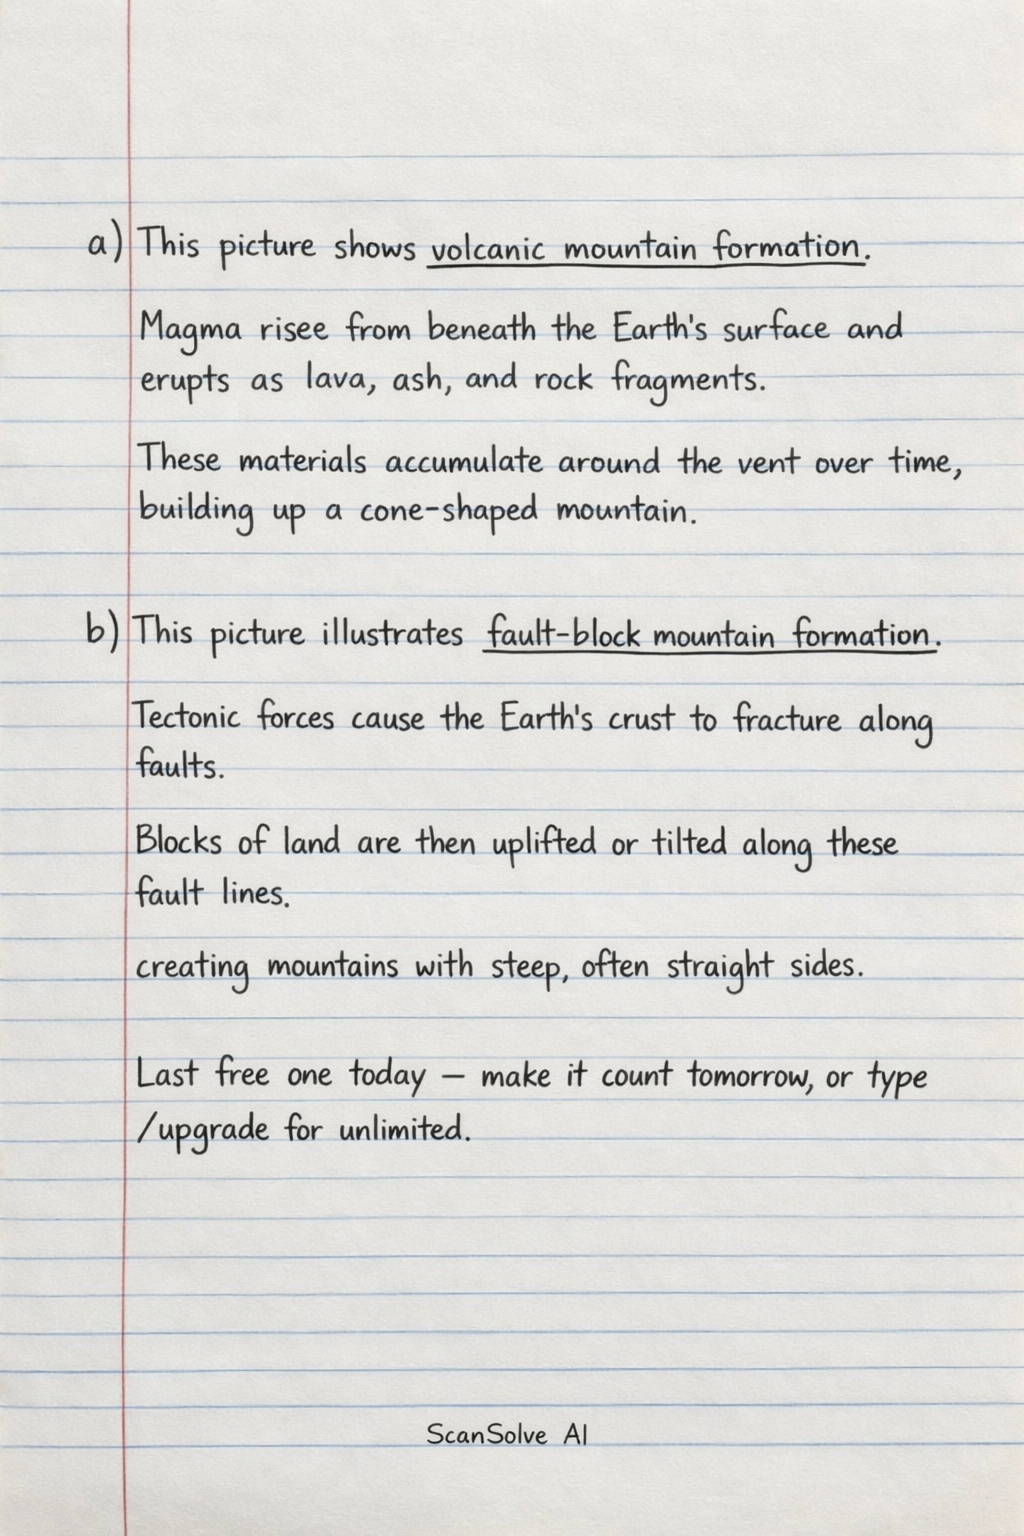 a) This picture shows volcanic mountain formation.
Magma risee from beneath the Earth's surface and
erupts as lava, ash, and rock fragments.
These materials accumulate around the vent over time,
building up a cone-shaped mountain.
b) This picture illustrates fault-block mountain formation.
Tectonic forces cause the Earth's crust to fracture along
faults.
Blocks of land are then uplifted or tilted along these
fault lines.
creating mountains with steep, often straight sides.
Last free one today — make it count tomorrow, or type
/upgrade for unlimited.
ScanSolve AI